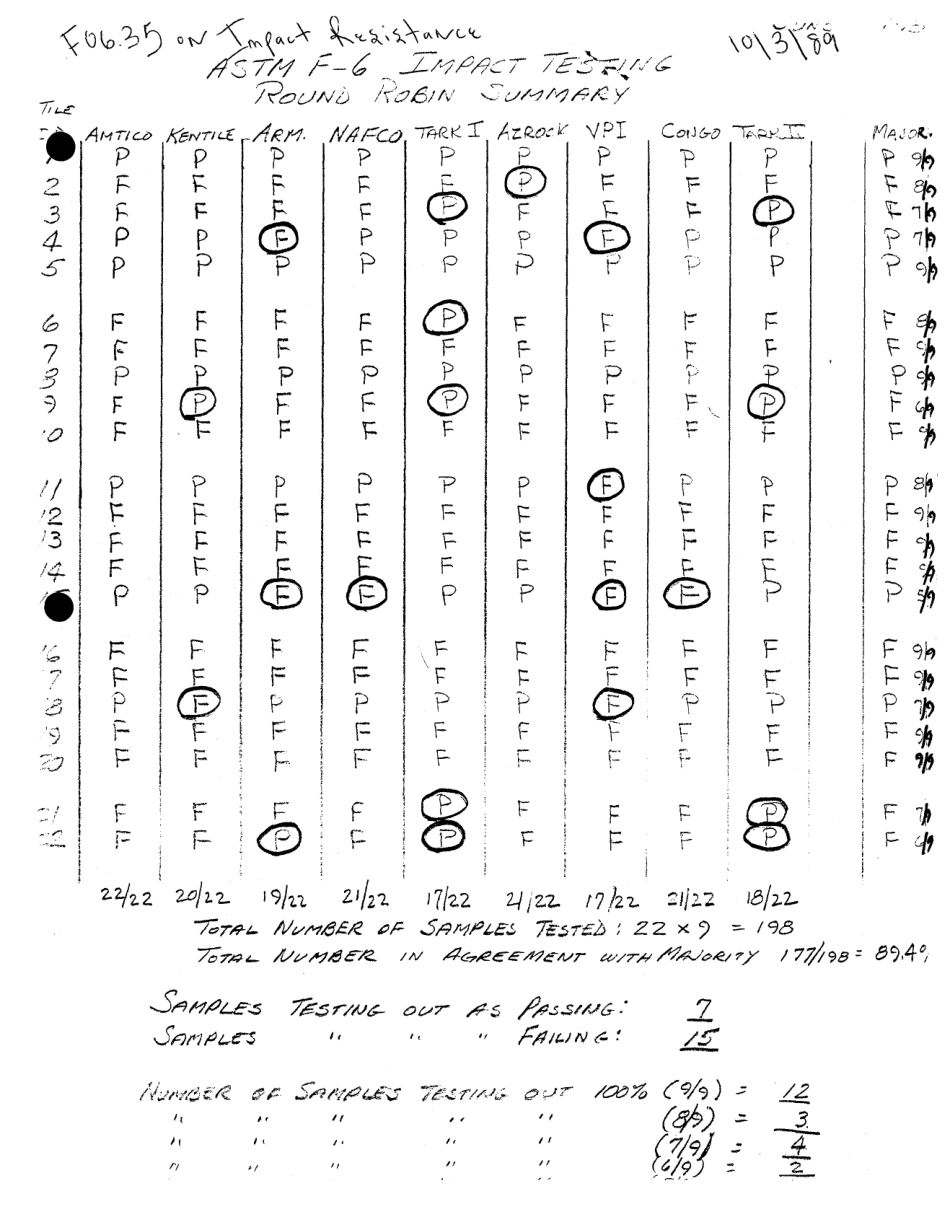 F06.35 on Impact Resistance 10/3/89
ASTM F-6 IMPACT TESTING
ROUND ROBIN SUMMARY
TILE
AMTICO KENTILE ARM. NAFCO TARK I AZROCK VPI CONGO TARK II MAJOR.
P P P P P P P P P P 9/9
2 F F F F F P F F F F 8/9
3 F F F F P F F F P F 7/9
4 P P F P P P F P P P 7/9
5 P P P P P P P P P P 9/9
6 F F F F P F F F F F 8/9
7 F F F F F F F F F F 9/9
8 P P P P P P P P P P 9/9
9 F P F F P F F F P F 6/9
10 F F F F F F F F F F 9/9
11 P P P P P P F P P P 8/9
12 F F F F F F F F F F 9/9
13 F F F F F F F F F F 9/9
14 F F F F F F F F F F 9/9
P P F F P P F F P P 5/9
16 F F F F F F F F F F 9/9
17 F F F F F F F F F F 9/9
18 P F P P P P F P P P 7/9
19 F F F F F F F F F F 9/9
20 F F F F F F F F F F 9/9
21 F F F F P F F F P F 7/9
22 F F P F P F F F P F 6/9
22/22 20/22 19/22 21/22 17/22 21/22 17/22 21/22 18/22
TOTAL NUMBER OF SAMPLES TESTED: 22 × 9 = 198
TOTAL NUMBER IN AGREEMENT WITH MAJORITY 177/198 = 89.4%
SAMPLES TESTING OUT AS PASSING: 7
SAMPLES " " " FAILING: 15
NUMBER OF SAMPLES TESTING OUT 100% (9/9) = 12
" " " " " (8/9) = 3
" " " " " (7/9) = 4
" " " " " (6/9) = 2